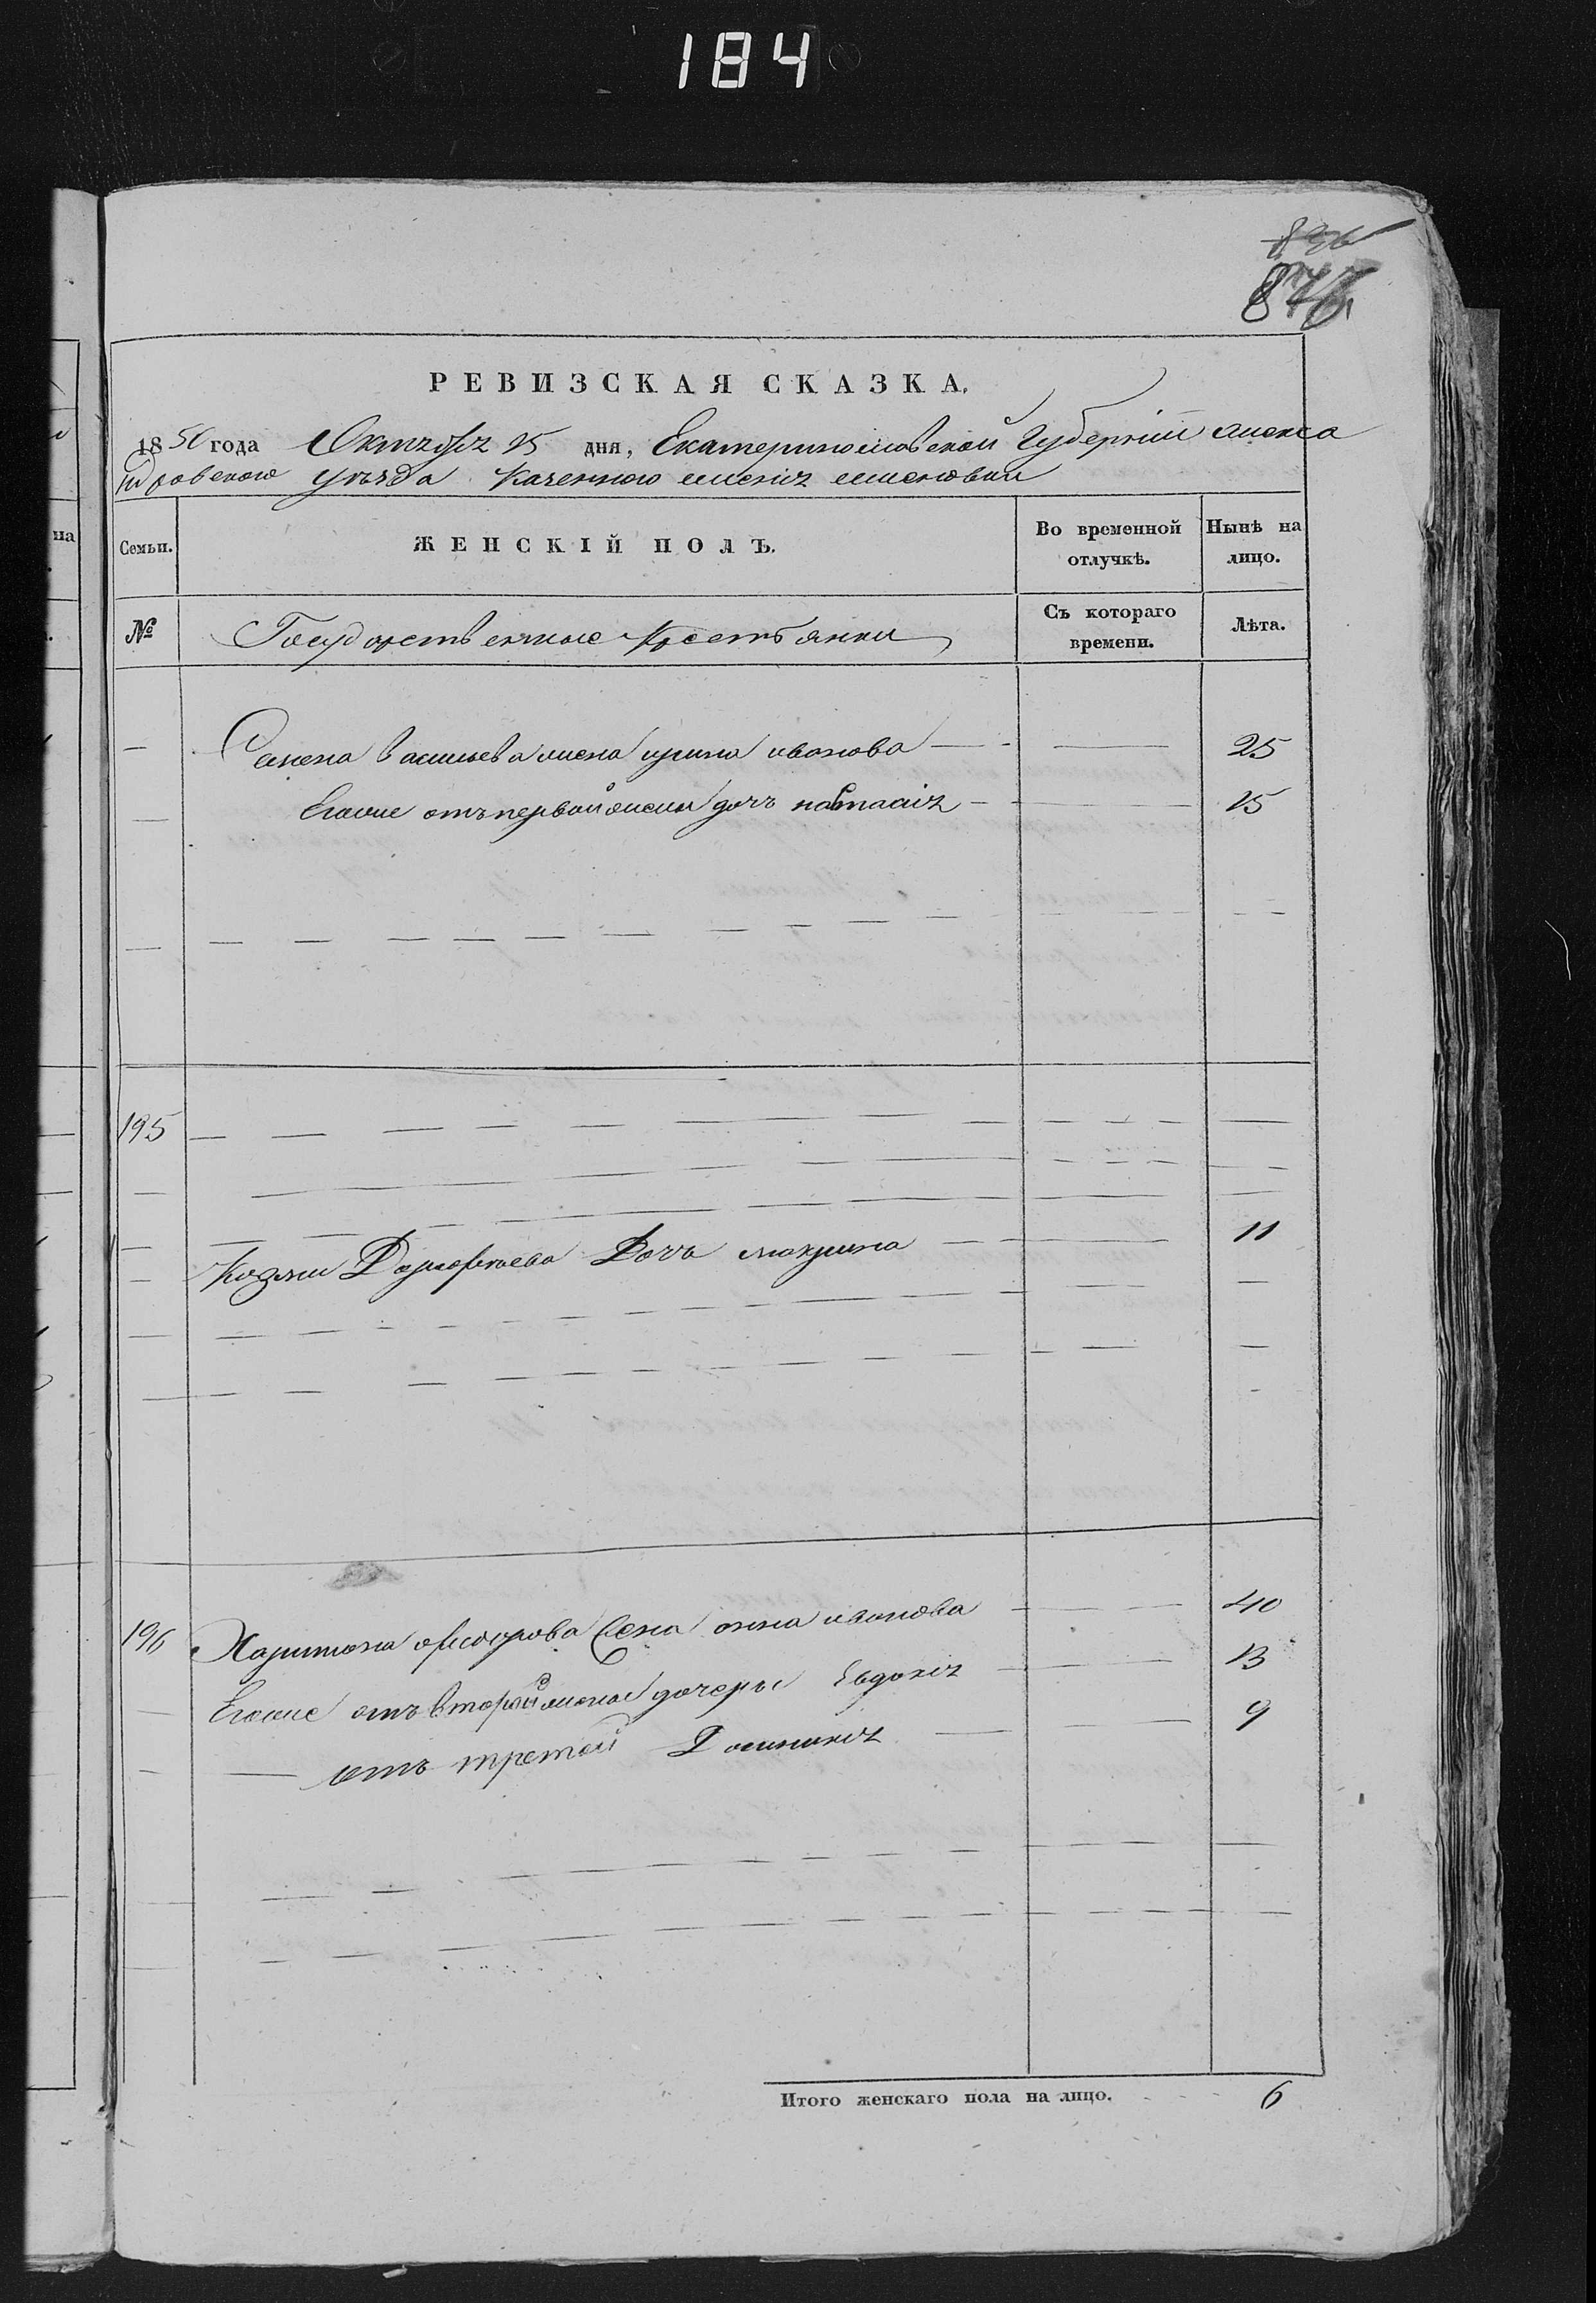 184
РЕВИЗСКАЯ СКАЗКА.
1850 года Октября 25 дня, Екатеринославской Губернии Алекса
ндровского уезда Казенного
Семьи.
ЖЕНСКІЙ ПОЛЪ.
Во временной отлучкѣ.
Нынѣ на лицо.
№
Государственные Крестьянки
Съ котораго времени.
Лѣта.
Семена Васильева жена ирина иванова 25
Егоже отъ первой жены дочь настасия 15
195
Козмы Дочь макрина 11
196 Харитона федорова жена анна иванова 40
Егоже отъ второй жены дочеры Евдокия 13
отъ третей Домникия 9
Итого женскаго пола на лицо. 6